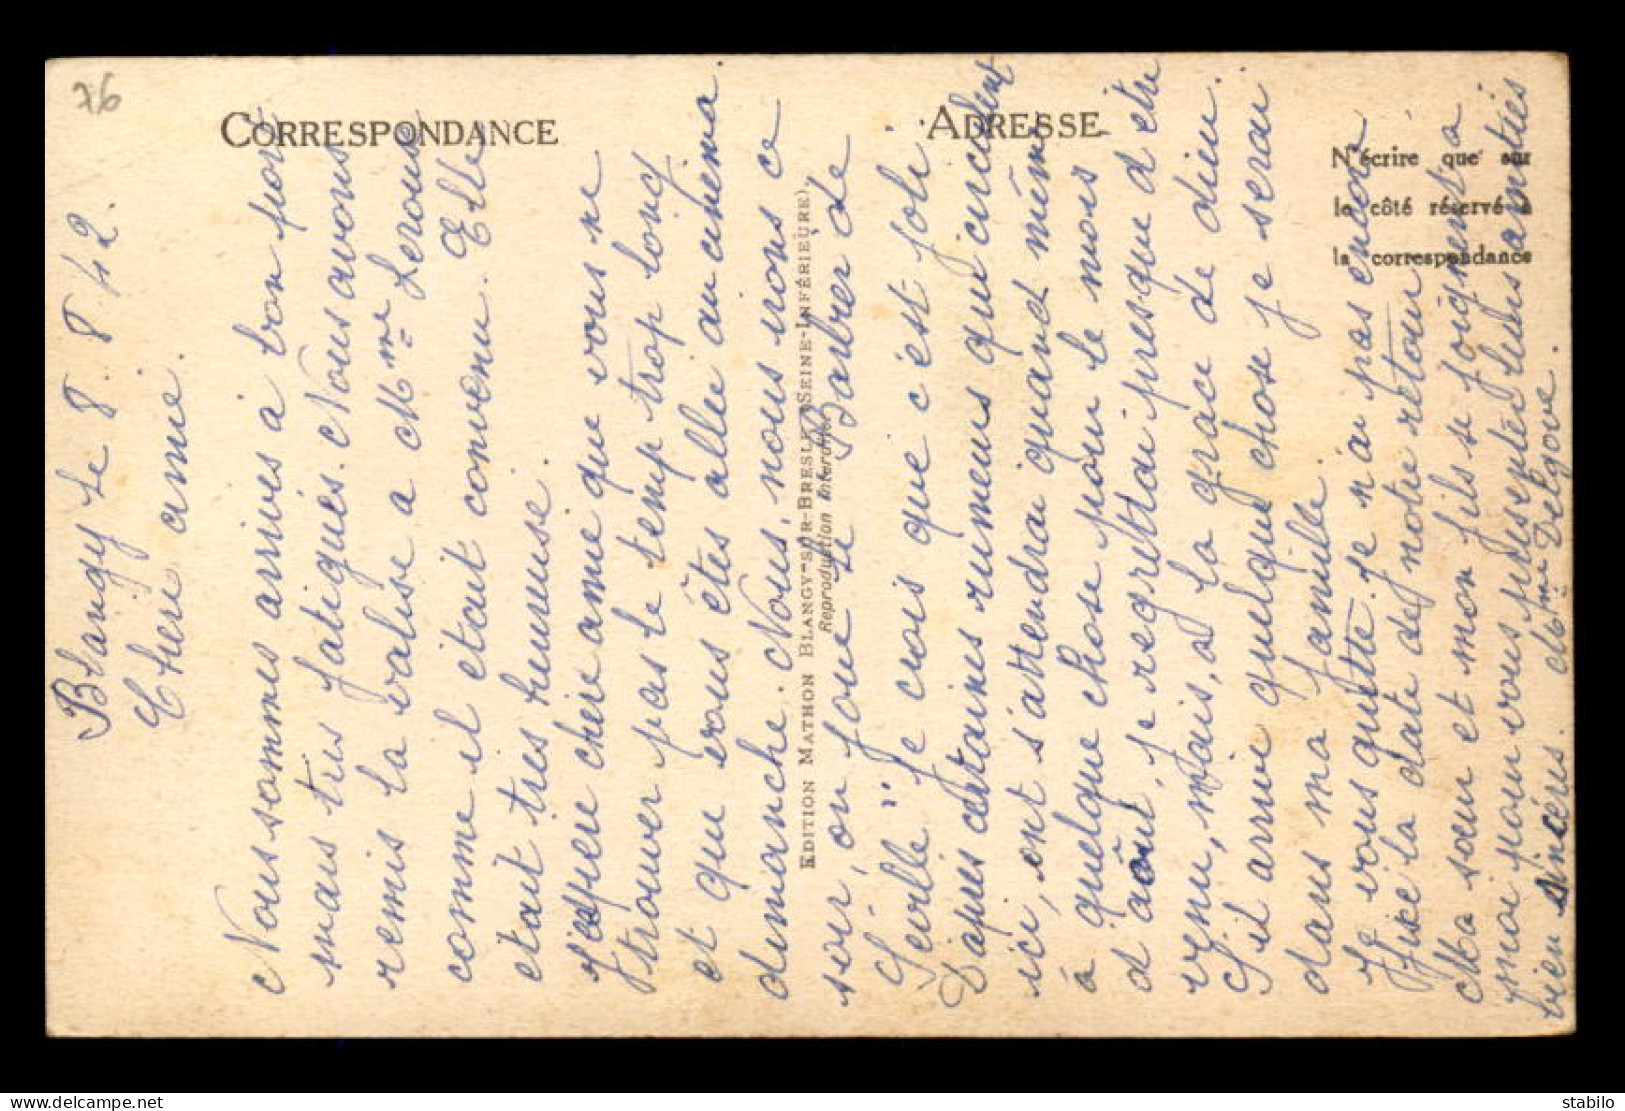 76
CORRESPONDANCE
ADRESSE
N'écrire que sur
le côté réservé à
la correspondance
EDITION MATHON BLANGY-SUR-BRESLE (SEINE-INFÉRIEURE).
Reproduction interdite
Blangy le 8. 8. 42.
Chere amie.
Nous sommes arrives à bon port
mais tres fatigués. Nous avons
remis la valise a Mme Leroux
comme il etait convenu. Elle
etait tres heureuse.
J'espere chere amie que vous ne
trouver pas le temp trop long
et que vous êtes allée au cinema.
dimanche. Nous, nous irons ce
soir, on joue le Barbier de
Seville" je crois que c'est joli.
D'apres certaines rumeurs qui circulent
ici, ont s'attendrai quand même
à quelque chose pour le mois
d'aôut, je regrettai presque d'etre
venu, mais, a la grâce de dieu.
S'il arrive quelque chose je serai
dans ma famille.
Je vous quitte. Je n'ai pas encore
fixe la date de notre retour
Ma sœur et mon fils se joignent a
moi pour vous presenter leurs amitiés
bien sincéres. Mme Delgove.
delcampe.net
stabilo